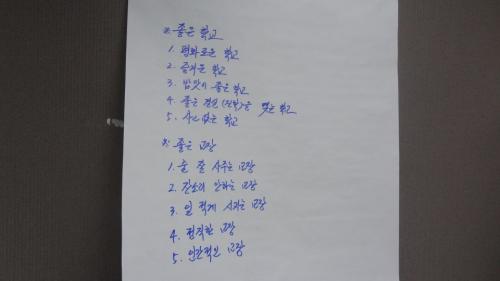 ※ 좋은 학교
1. 평화로운 학교
2. 즐거운 학교
3. 밥맛이 좋은 학교
4. 좋은 전통()을 맺는 학교
5. 사고 없는 학교
※ 좋은 교장
1. 술 잘 사주는 교장
2. 잔소리 안하는 교장
3. 일 적게 시키는 교장
4. 정직한 교장
5. 인간적인 교장